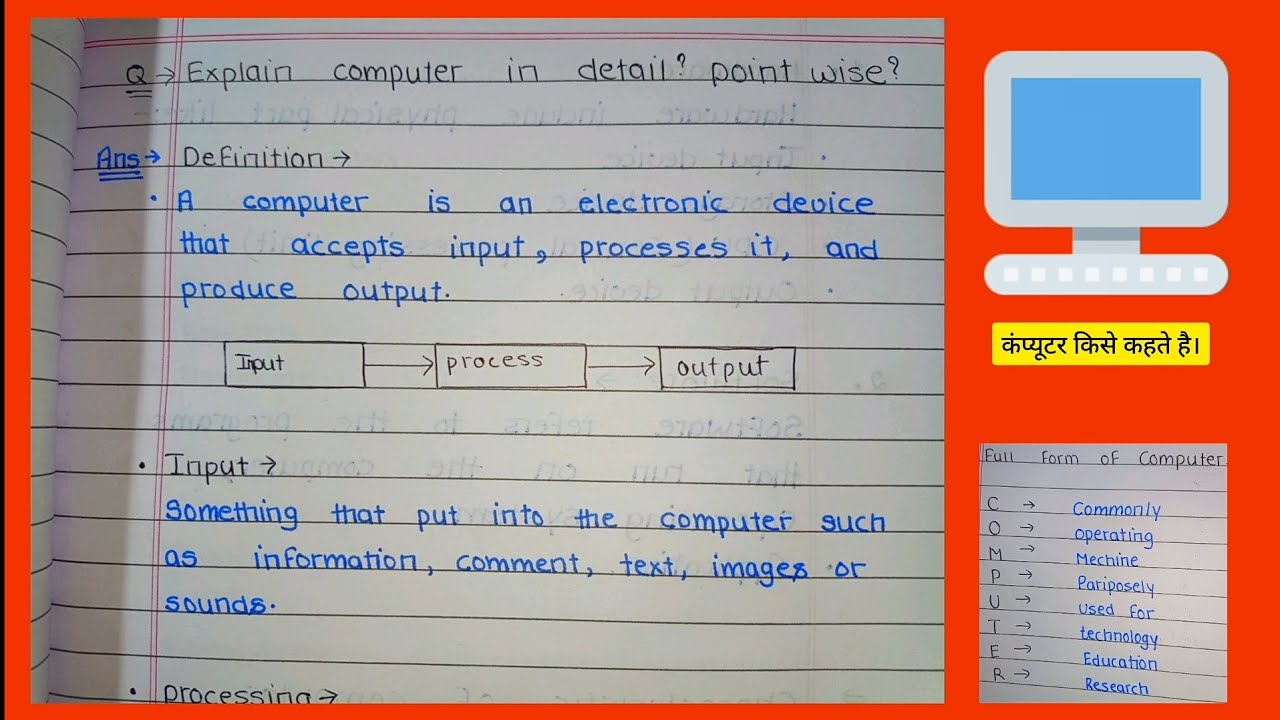 Q → Explain computer in detail? point wise?
Ans → Definition →
• A computer is an electronic device
that accepts input, processes it, and
produce output.
Input → process → output
• Input →
Something that put into the computer such
as information, comment, text, images or
sounds.
• processing →
कंप्यूटर किसे कहते है।
Full Form of Computer
C → Commonly
O → operating
M → Mechine
P → Pariposely
U → used for
T → technology
E → Education
R → Research